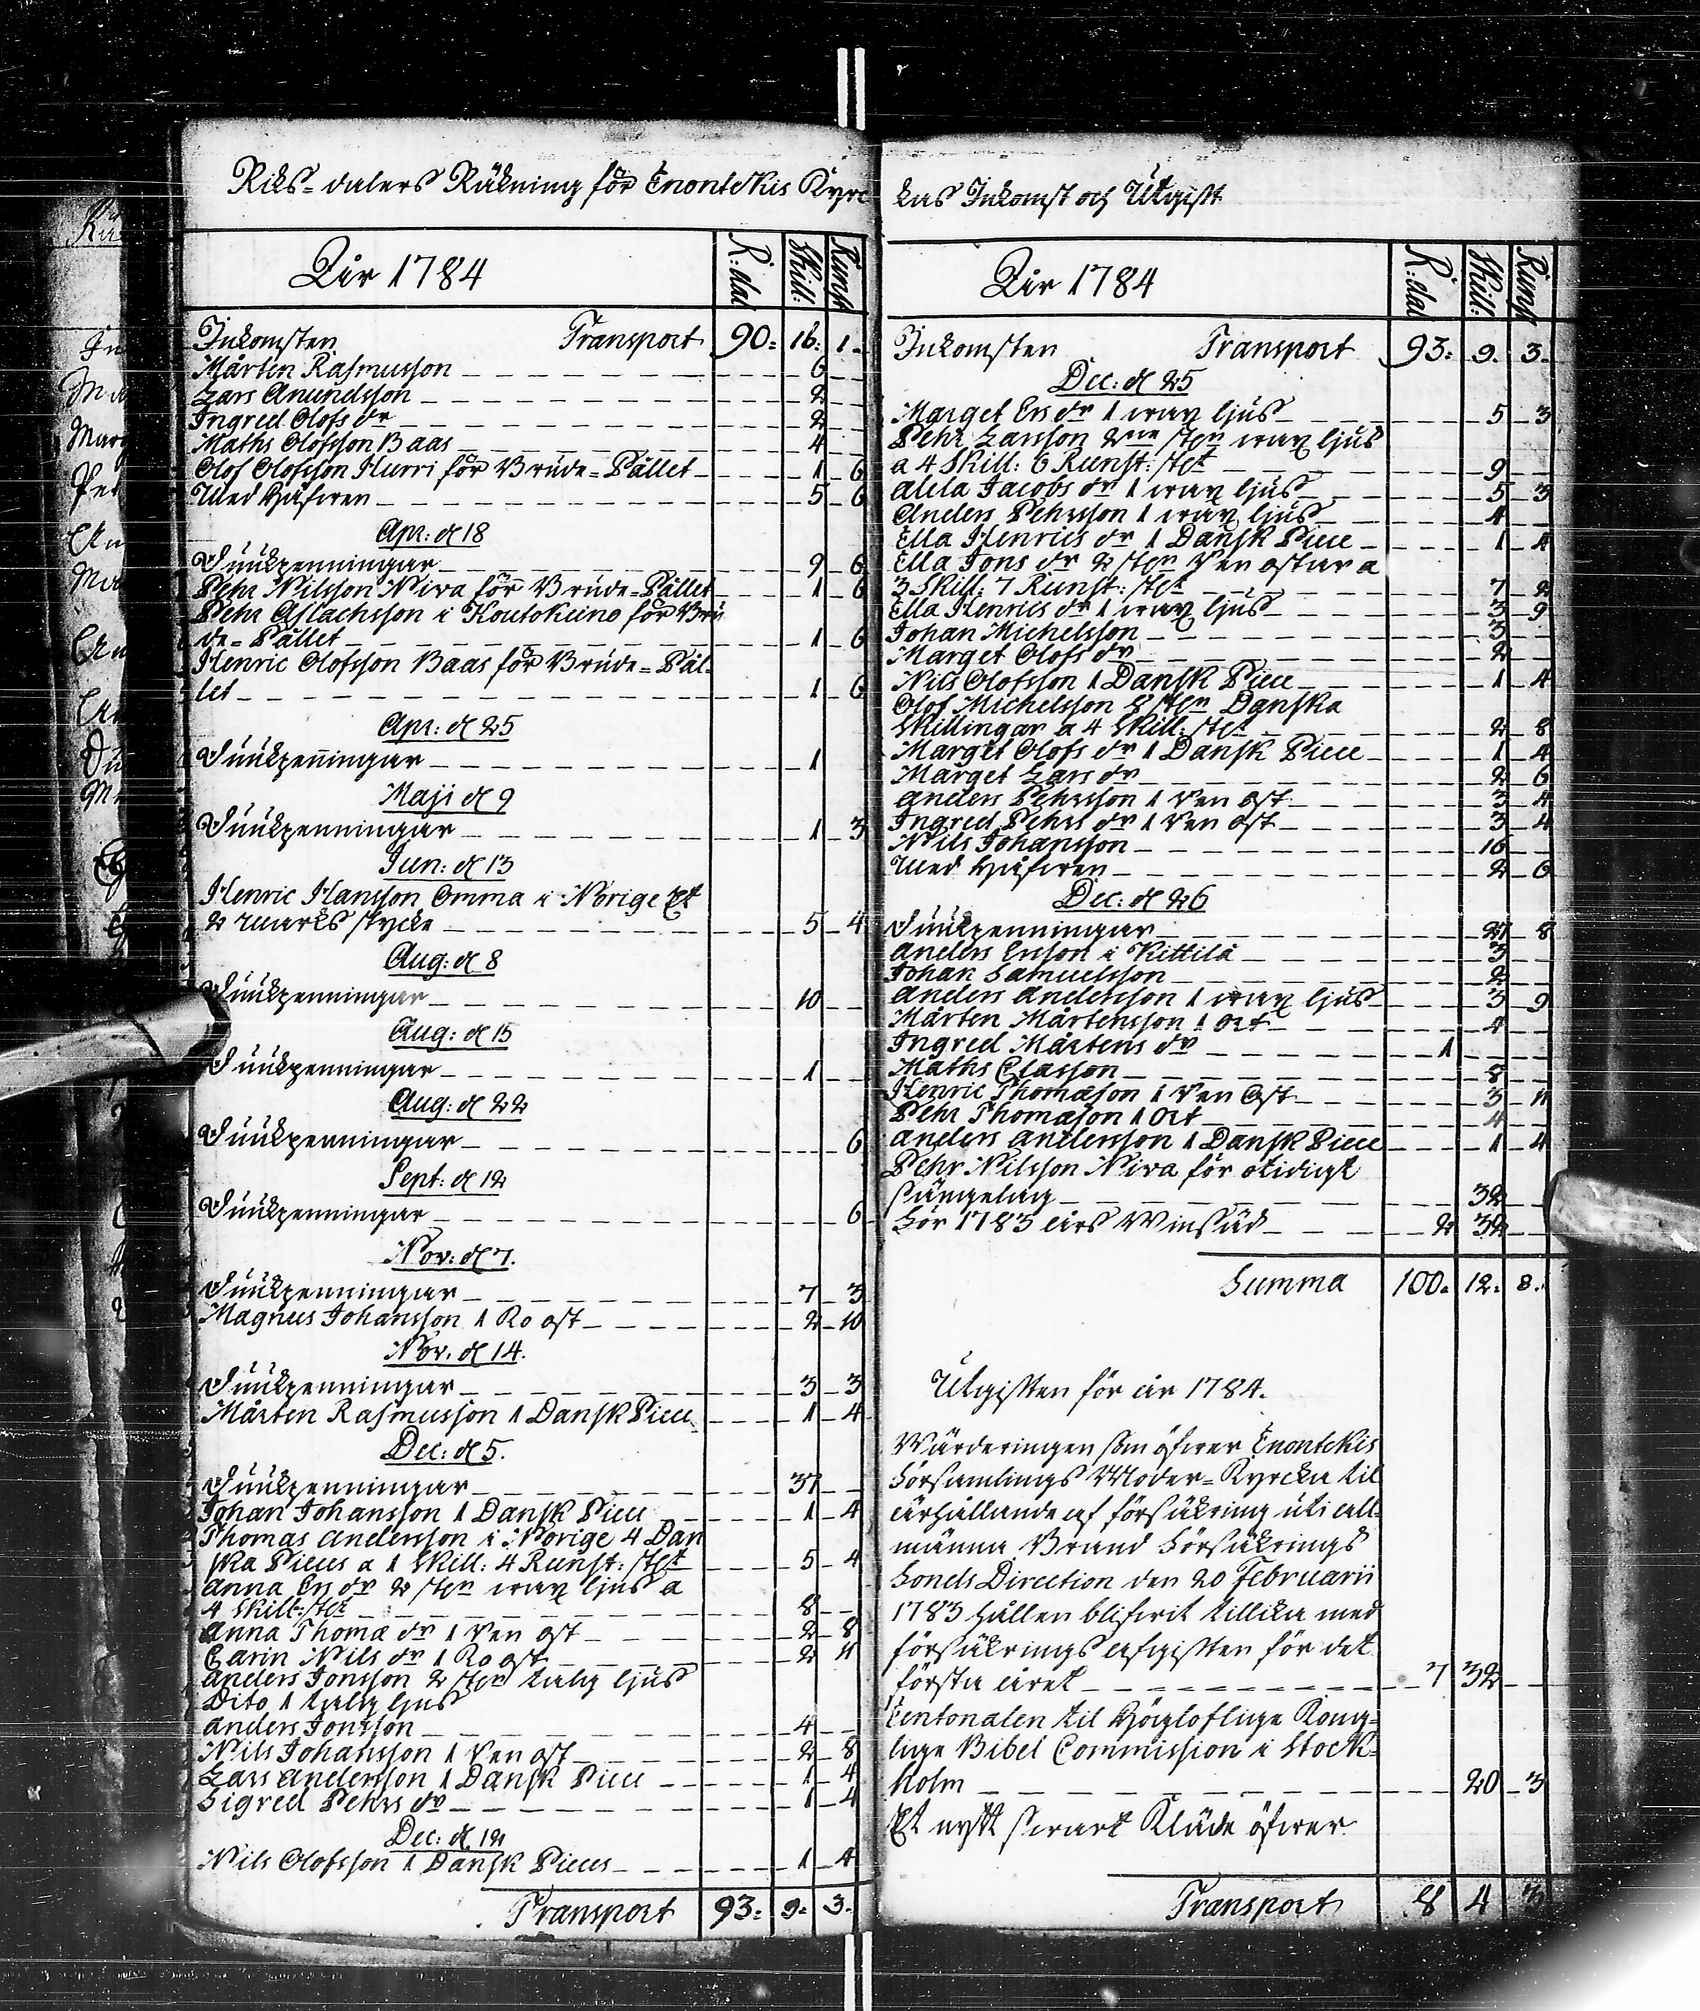 Riks-dalers Räkning för Enontekis Kyrc
Åhr 1784 R:dal Skill: Runst
Inkomsten Transport 90: 16: 1
Mårten Rasmusson 6
Lars Amundsson 2
Ingred Olofs dr 2
Maths Olofsson Baas 4
Olof Olofsson Hurri för Brude-Pället 1 6
Med Håfwen 5 6
Apr: d 18
Siukpenningar 9 6
Pehr Nilsson Niva för Brude-Pället 1 6
Pehr Aslachsson i Koutokeino för Bru
de-Pället 1 6
Henric Olofsson Baas för Brude-Päl-
let 1 6
Apr: d 25
Siukpenningar 1
Maji d 9
Siukpenningar 1 3
Jun: d 13
Henric Hansson Omma i Norige Et
2 marks stycke 5 4
Aug: d 8
Siukpenningar 10
Aug: d 15
Siukpenningar 1
Aug: d 22
Siukpenningar 6
Sept: d 12
Siukpenningar 6
Nov: d 7.
Siukpenningar 7 3
Magnus Johansson 1 Ko ost 2 10
Nov. d 14.
Siukpenningar 3 3
Mårten Rasmusson 1 Dansk Piece 1 4
Dec: d 5.
Siukpenningar 37
Johan Johansson 1 Dansk Piece 1 4
Thomas Andersson i Norige 4 Dan
ska Pieces a 1 Skill: 4 Runst: stet 5 4
Anna Ers dr 2 sten wax ljus a
4 Skill: stet 8
Anna Thomæ dr 1 Ren ost 2 8
Carin Nils dr 1 Ko ost 2 11
Anders Jonsson 2 sten talg ljus
Dito 1 talg ljus
Anders Jonsson 4
Nils Johansson 1 Ren ost 2 8
Lars Andersson 1 Dansk Piece 1 4
Sigred Pehrs dr 1 4
Dec: d 12
Nils Olofsson 1 Dansk Pieces 1 4
Transport 93: 9: 3.
kas Inkomst och Utgift
Åhr 1784 R:dal Skill: Runst
Inkomsten Transport 93: 9. 3.
Dec: d 25
Marget Ers dr 1 wax ljus 5 3
Pehr Larsson 2ne sten wax ljus
a 4 Skill: 6 Runst: stet 9
Alela Jacobs dr 1 wax ljus 5 3
Anders Pehrsson 1 wax ljus 4
Ella Henrics dr 1 Dansk Piece 1 4
Ella Jons dr 2 sten Ren ostar a
3 Skill: 7 Runst: stet 7 2
Ella Henrics dr 1 wax ljus 3 9
Johan Michelsson 3
Marget Olofs dr 2
Nils Olofsson 1 Dansk Piece 1 4
Olof Michelsson 8 sten Danska
Skillingar a 4 Skill: stet 2 8
Marget Olofs dr 1 Dansk Piece 1 4
Marget Lars dr 2 6
Anders Pehrsson 1 Ren ost 3 4
Ingred Pehrs dr 1 Ren ost 3 4
Nils Johansson 16
Med Håfwen 2 6
Dec: d 26
Siukpenningar 21 8
Anders Ersson i Kittilä 3
Johan Samuelsson 2
Anders Andersson 1 wax ljus 3 9
Mårten Mårtensson 1 Ort 4
Ingred Mårtens dr 1
Maths Classon 8
Henric Thomæson 1 Ren Ost 3 11
Pehr Thomæson 1 Ort 4
Anders Andersson 1 Dansk Piece 1 4
Pehr Nilsson Niva för otidigt
sängelag 32
För 1783 års Winsäd 2 32
Summa 100. 12. 8.
Utgiften för år 1784.
Wärderingen som öfwer Enontekis
Församlings Moder-Kyrcka til
ärhållande af försäkring uti all-
männa Brand Försäkrings
Fonds Direction den 20 Februarii
1783 hållen blifwit tillika med
försäkrings afgiften för det
första året 7 32
Centonalen til Högloflige Kong-
lige Bibel Commission i Stock-
holm 20 3
Et nytt swart Kläde öfwer
Transport 8 4 3